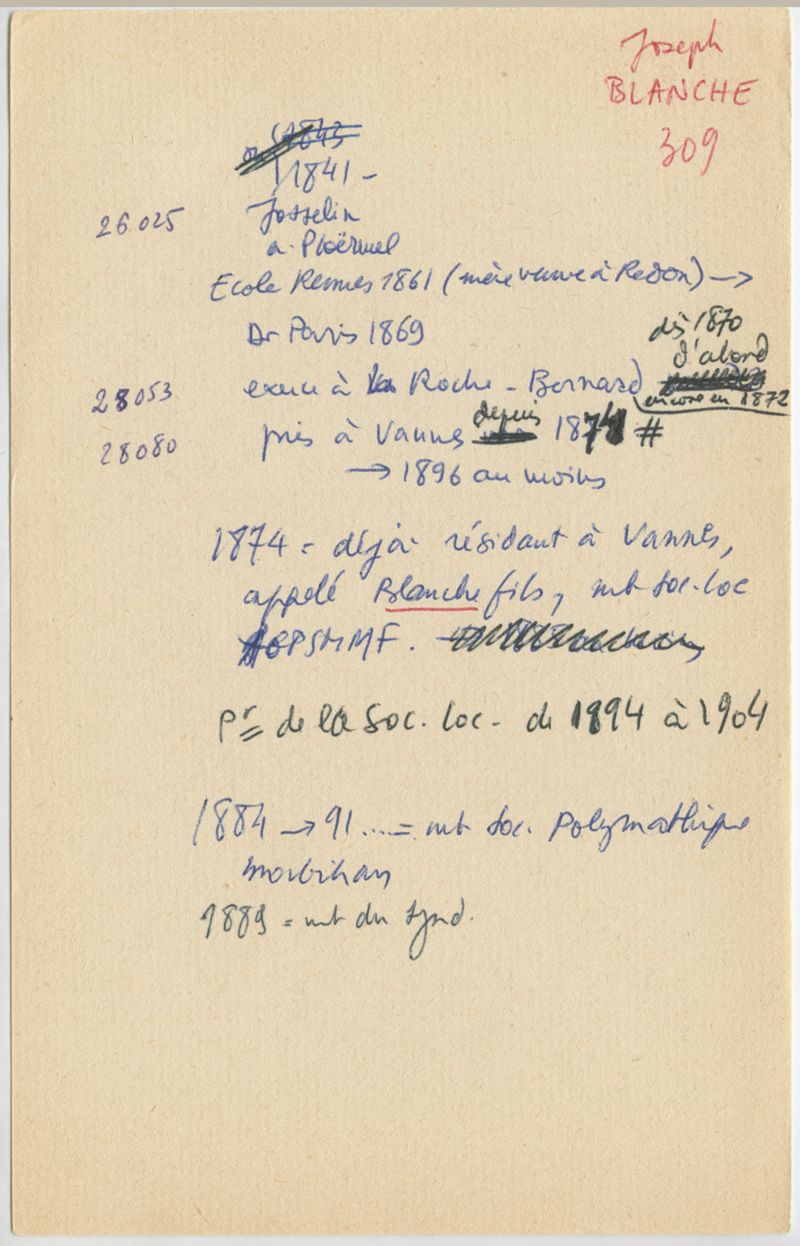 Joseph
BLANCHE
309
1843
1841 -
26.025 Josselin
a. Ploërmel
Ecole Rennes 1861 (mère veuve à Redon) →
Dr Paris 1869
dès 1870
d'abord
28053 exerce à la Roche-Bernard
encore en 1872
28080 puis à Vannes depuis 1874 #
→ 1896 au moins
1874 = déjà résidant à Vannes,
appelé Blanche fils, mb soc. loc
AGPSMMF.
Pr de la Soc. loc. de 1894 à 1904
1884 → 91 .... = mb soc. Polymathique
Morbihan
1889 = mb du synd.